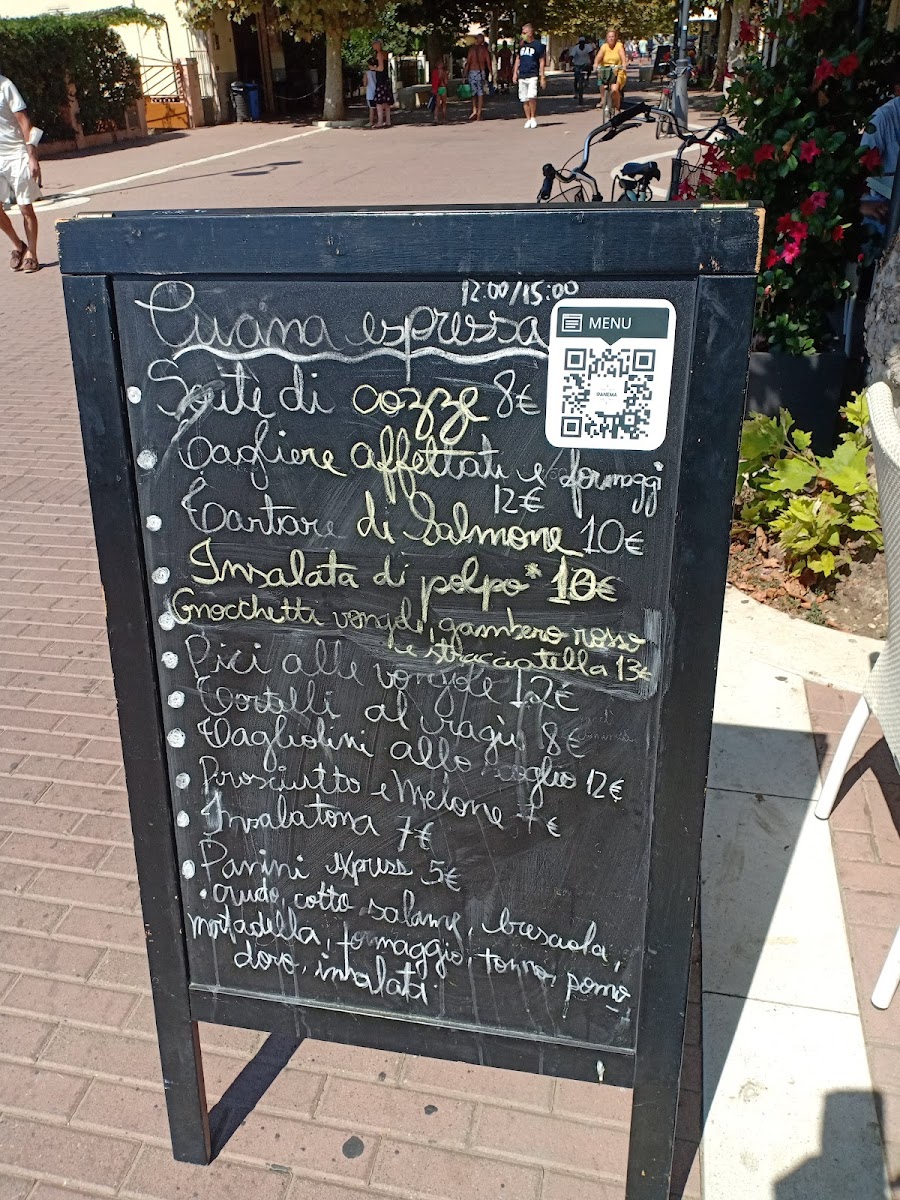 12:00/15:00
Cucina espressa
MENU
IPANEMA
Soutè di cozze 8€
Tagliere affettati e formaggi
12€
Tartare di Salmone 10€
Insalata di polpo* 10€
Gnocchetti vongole, gambero rosso
e stracciatella 13€
Pici alle vongole 12€
Tortelli al ragù 8€
Tagliolini allo scoglio 12€
Prosciutto e Melone 7€
Insalatona 7€
Panini express 5€
crudo, cotto, salame, bresaola,
mortadella, formaggio, tonno, pomo
doro, insalata.